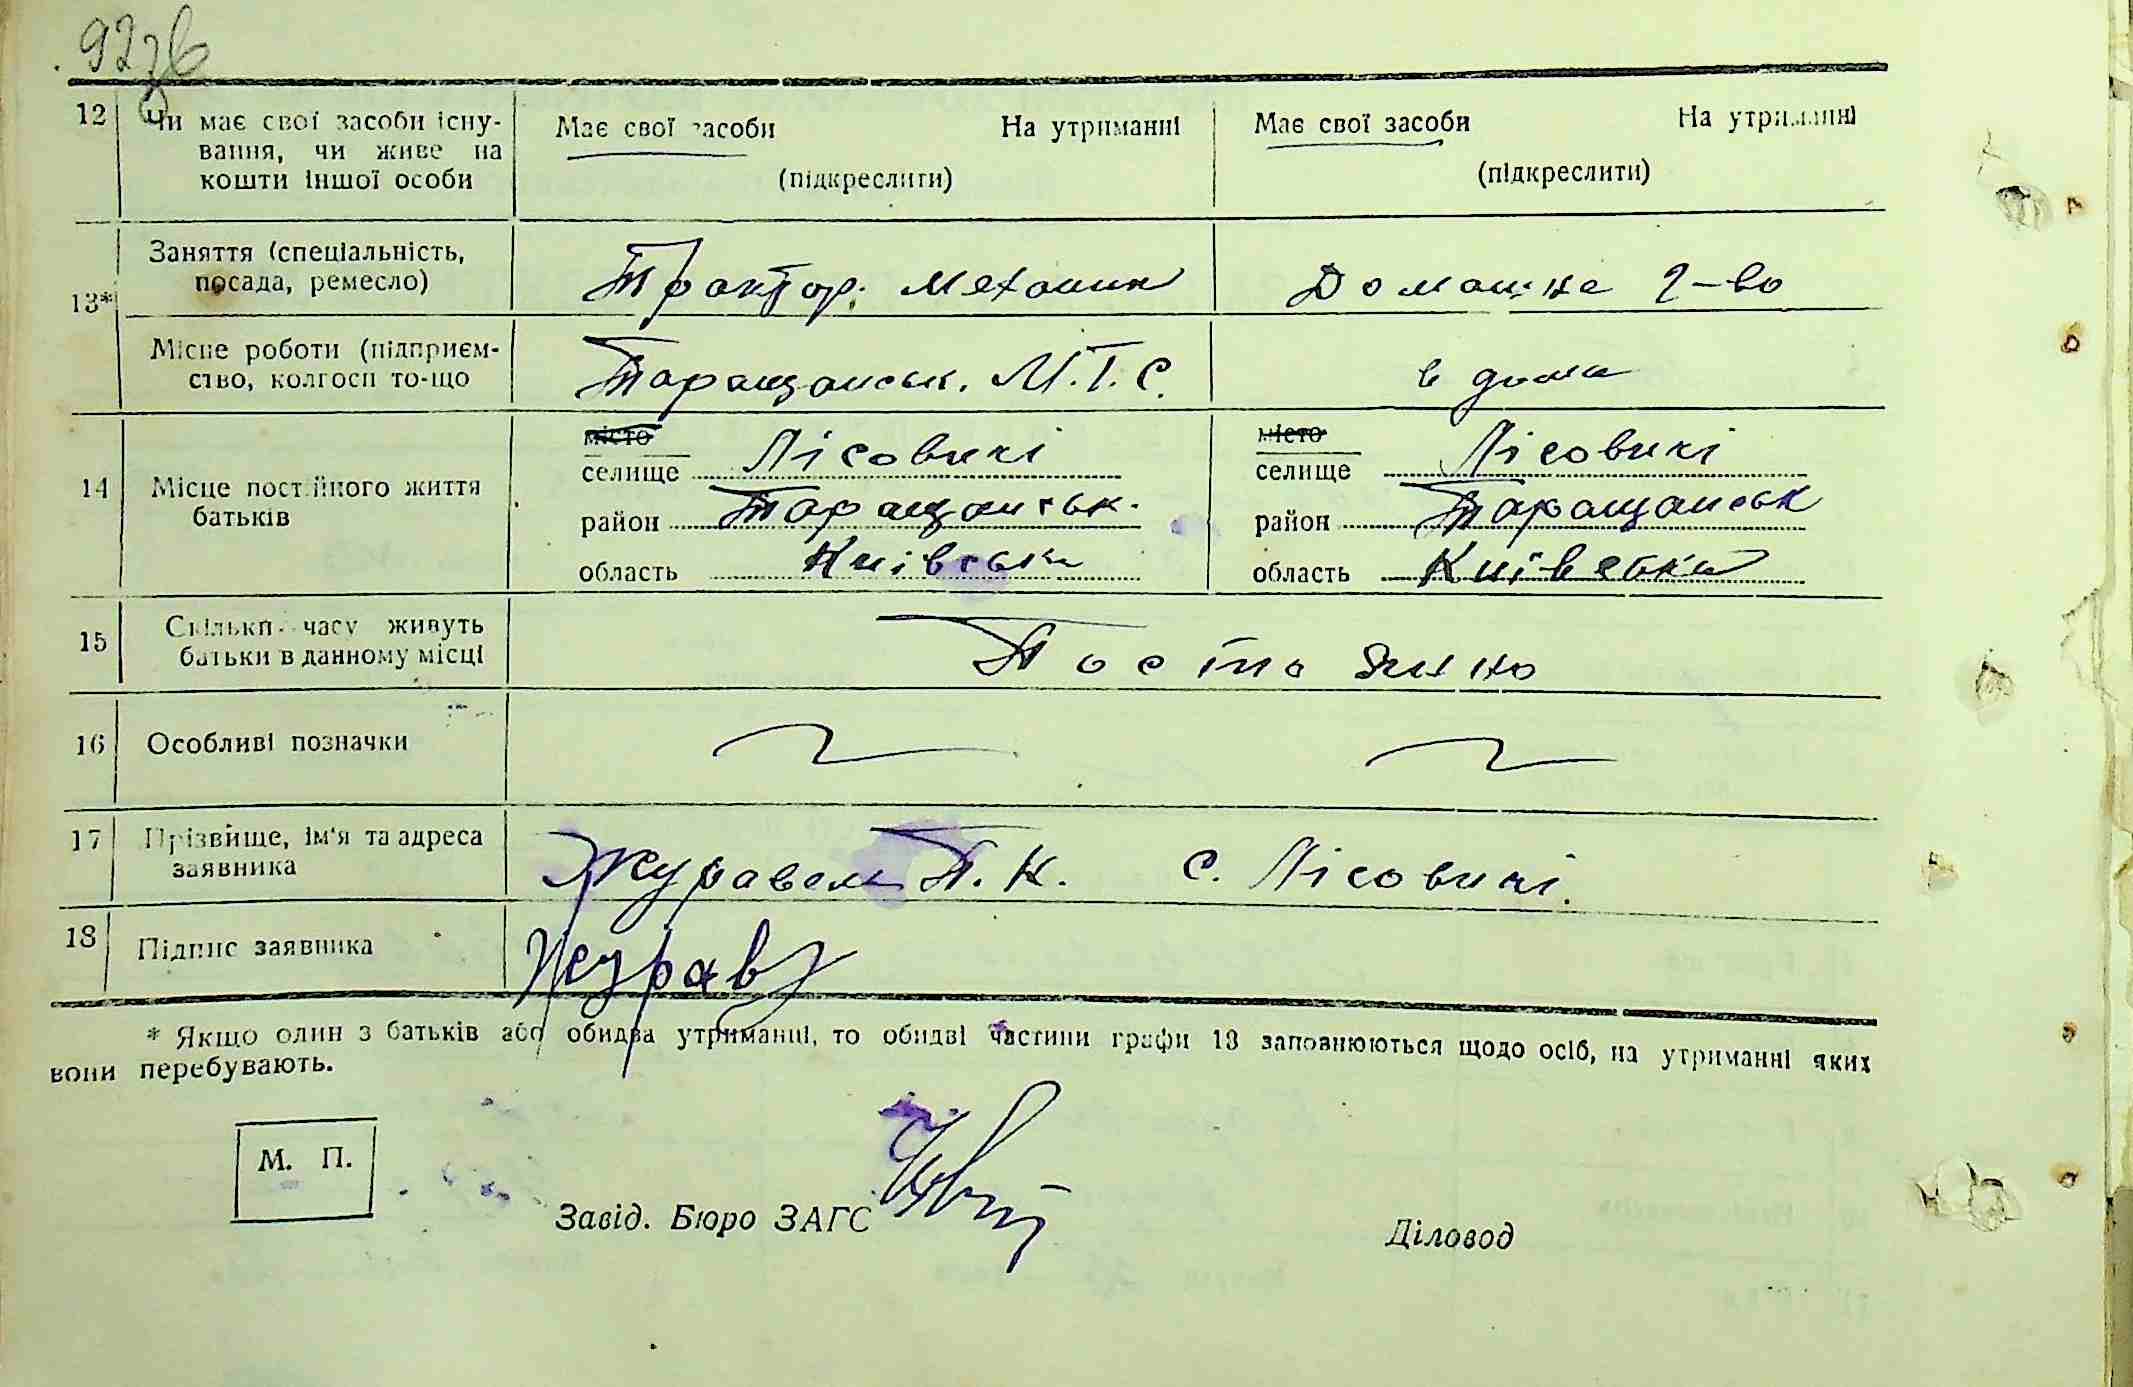 927б
12 Чи має свої засоби існу- Має свої засоби На утриманні Має свої засоби На утриманні
вання, чи живе на
кошти іншої особи (підкреслити) (підкреслити)
Заняття (спеціальність,
посада, ремесло) Трактор. механик Домашне г-во
13*
Місце роботи (підприєм-
ство, колгосп то-що Таращанськ. М.Т.С. в дома
місто місто
селище Лісовичі селище Лісовичі
14 Місце постійного життя
батьків район Таращанськ. район Таращанськ
область Київська область Київська
15 Скільки часу живуть
батьки в данному місці Постоянно
16 Особливі позначки
17 Прізвище, ім'я та адреса
заявника Журавель П. К. с. Лісовичі.
18 Підпис заявника Журав
* Якщо один з батьків або обидва утриманці, то обидві частини графи 13 заповнюються щодо осіб, на утриманні яких
вони перебувають.
М. П.
Завід. Бюро ЗАГС Діловод